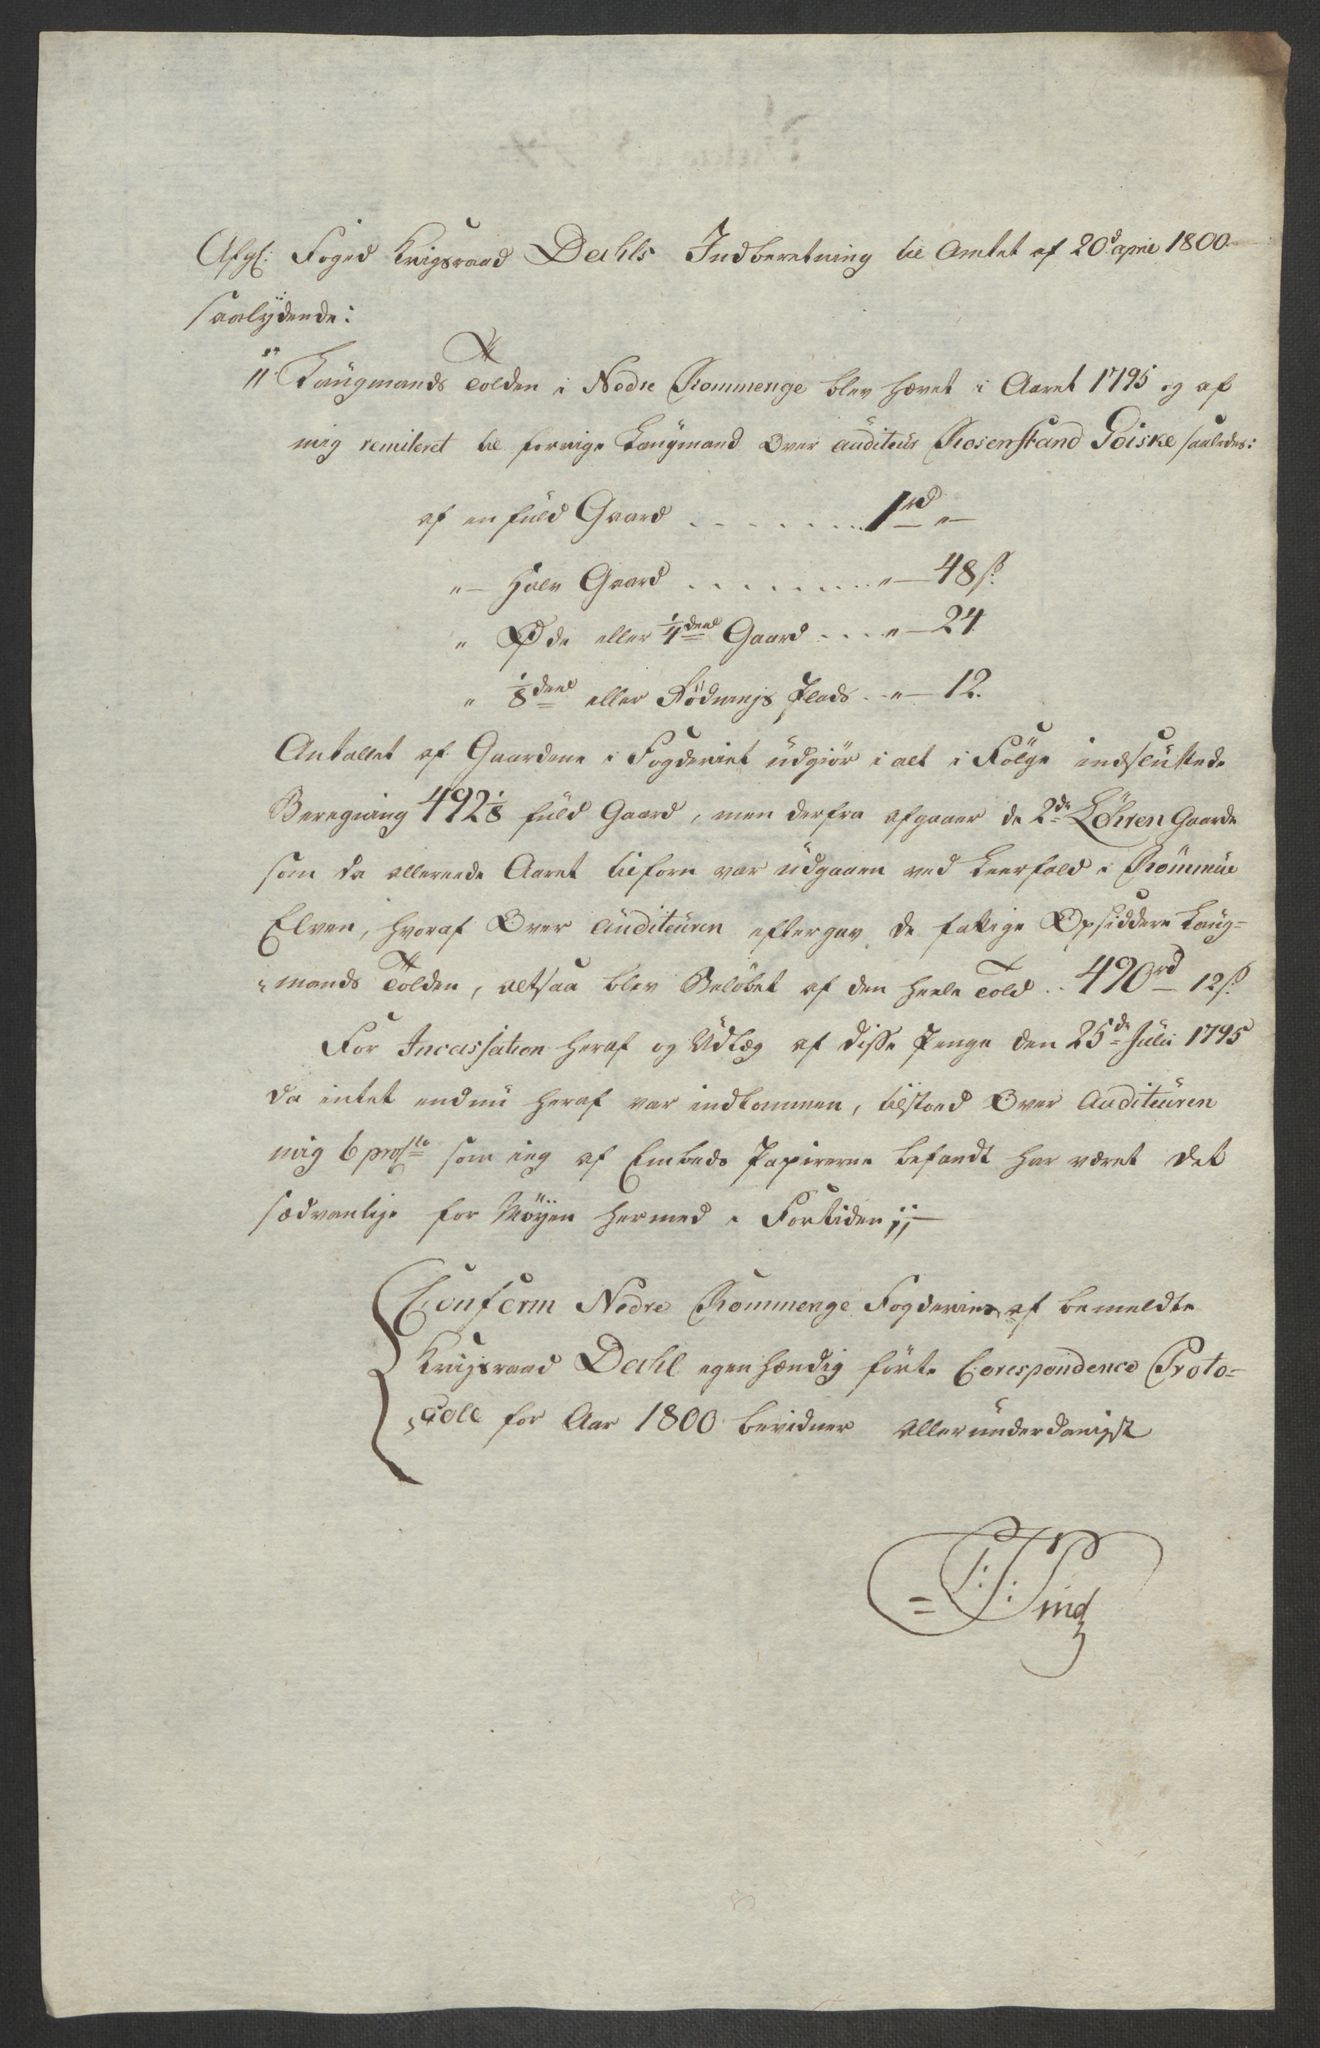 Afgl: Foged Krigsraad Dahls Indberetning til Amtet af 20d april 1800
saalÿdende:
"Laugmands Tolden i Nedre Rommerige blev hævet i Aaret 1795 og af
mig remiteret til forrige Laugmand Over auditeur Rosenstand Goiske saaledes:
af en fuld Gaard . . . . . . . 1 rd "
" — Halv Gaard . . . . . . . . " — 48 s.
" Øde eller 1/4deel Gaard . . . " — 24
" 1/8deel eller Rÿdnings Plads . . " — 12.
Antallet af Gaardene i Fogderiet udgiør i alt i Følge indsluttede
Beregning 492 1/8 fuld Gaard, men derfra afgaaer de 2de Løhren Gaarde
som da allereede Aaret tilforn var udgaaen ved Leerfald i Rommue
Elven, hvoraf Over Auditeuren eftergav de fattige Opsiddere Laug-
"mands Tolden, altsaa blev Beløbet af den heele Told . . 490 rd 12 s.
For Incassation heraf og Udlæg af disse Penge den 25de Julii 1795
da intet endnu heraf var indkommen, tilstoed Over Auditeuren
mig 6 prcto som ieg af Embeds Papirerne befandt har været det
sædvanlige for Møyen hermed i Fortiden";—
Conform Nedre Rommerige Fogderies af bemeldte
Krigsraad Dahl egenhændig førte Corespondence Proto-
"coll for Aar 1800 bevidner allerunderdanigst